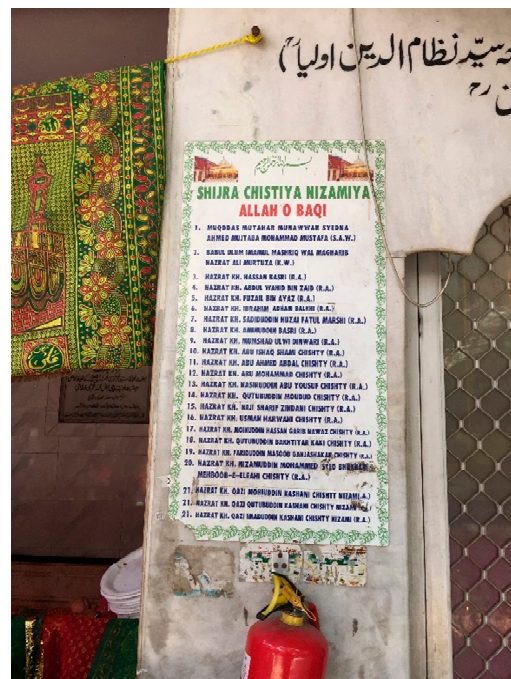 سیّد نظام الدین اولیاؒ)
بسم الله الرحمن الرحيم
SHIJRA CHISTIYA NIZAMIYA
ALLAH O BAQI
1. MUQDDAS MUTAHAR MUNAWWAR SYEDNA
AHMED MUJTABA MOHAMMAD MUSTAFA (S.A.W.)
2. BABUL ULUM IMAMUL MASHRIQ WAL MAGHARIB
HAZRAT ALI MURTUZA (K.W.)
3. HAZRAT KH. HASSAN BASRI (R.A.)
4. HAZRAT KH. ABDUL WAHID BIN ZAID (R.A.)
5. HAZRAT KH. FUZAIL BIN AYAZ (R.A.)
6. HAZRAT KH. IBRAHIM ADHAM BALKHI (R.A.)
7. HAZRAT KH. SADIDUDDIN HUZAI FATUL MARSHI (R.A.)
8. HAZRAT KH. AMINUDDIN BASRI (R.A.)
9. HAZRAT KH. MUMSHAD ULWI DINWARI (R.A.)
10. HAZRAT KH. ABU ISHAQ SHAMI CHISHTY (R.A.)
11. HAZRAT KH. ABU AHMED ABDAL CHISHTY (R.A.)
12. HAZRAT KH. ABU MOHAMMAD CHISHTY (R.A.)
13. HAZRAT KH. NASIRUDDIN ABU YOUSUF CHISHTY (R.A.)
14. HAZRAT KH. QUTUBUDDIN MOUDUD CHISHTY (R.A.)
15. HAZRAT KH. HAJI SHARIF ZINDANI CHISHTY (R.A.)
16. HAZRAT KH. USMAN HARWANI CHISHTY (R.A.)
17. HAZRAT KH. MOINUDDIN HASSAN GARIB NAWAZ CHISHTY (R.A.)
18. HAZRAT KH. QUTUBUDDIN BAKHTIYAR KAKI CHISHTY (R.A.)
19. HAZRAT KH. FARIDUDDIN MASOOD GANJASHAKAR CHISHTY (R.A.)
20. HAZRAT KH. NIZAMUDDIN MOHAMMED SYED
MEHBOOB-E-ELEAHI CHISHTY (R.A.)
21. HAZRAT KH. QAZI MOHIUDDIN KASHANI CHISHTY NIZAMI
21. HAZRAT KH. QAZI QUTUBUDDIN KASHANI CHISHTY NIZAMI
21. HAZRAT KH. QAZI IMADUDDIN KASHANI CHISHTY NIZAMI (R.A.)